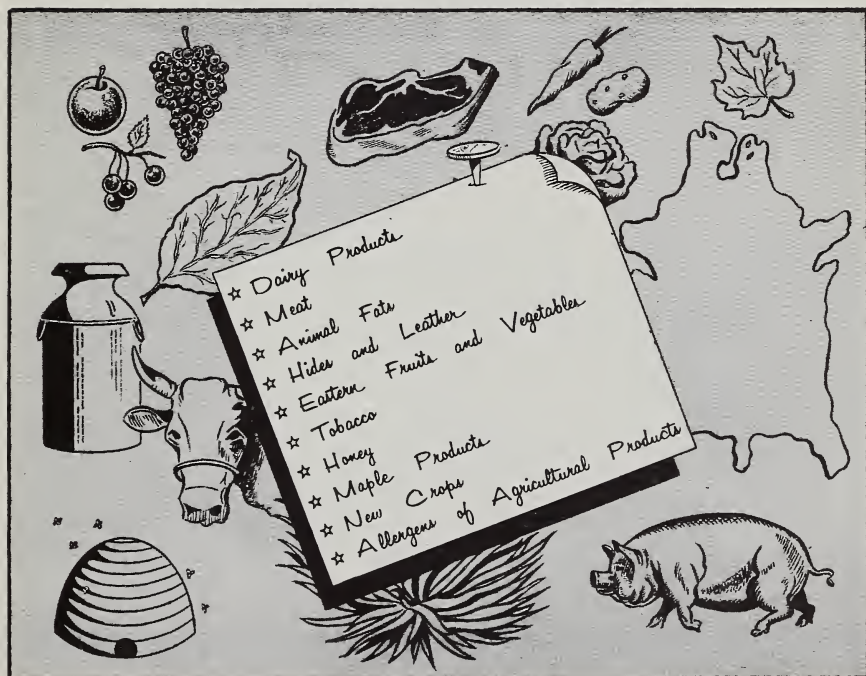 ☆ Dairy Products
☆ Meat
☆ Animal Fats
☆ Hides and Leather
☆ Eastern Fruits and Vegetables
☆ Tobacco
☆ Honey
☆ Maple Products
☆ New Crops
☆ Allergens of Agricultural Products